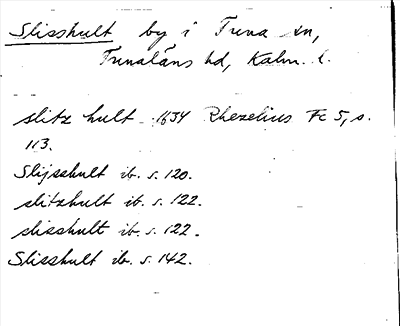 Slisshult by i Tuna sn,
Tunaläns hd, Kalm. l.
slitz hult 1634 Rhezelius Fc 5, s.
113.
Slijsshult ib. s. 120.
slitzhult ib. s. 122.
slisshult ib. s. 122.
Slisshult ib. s. 142.